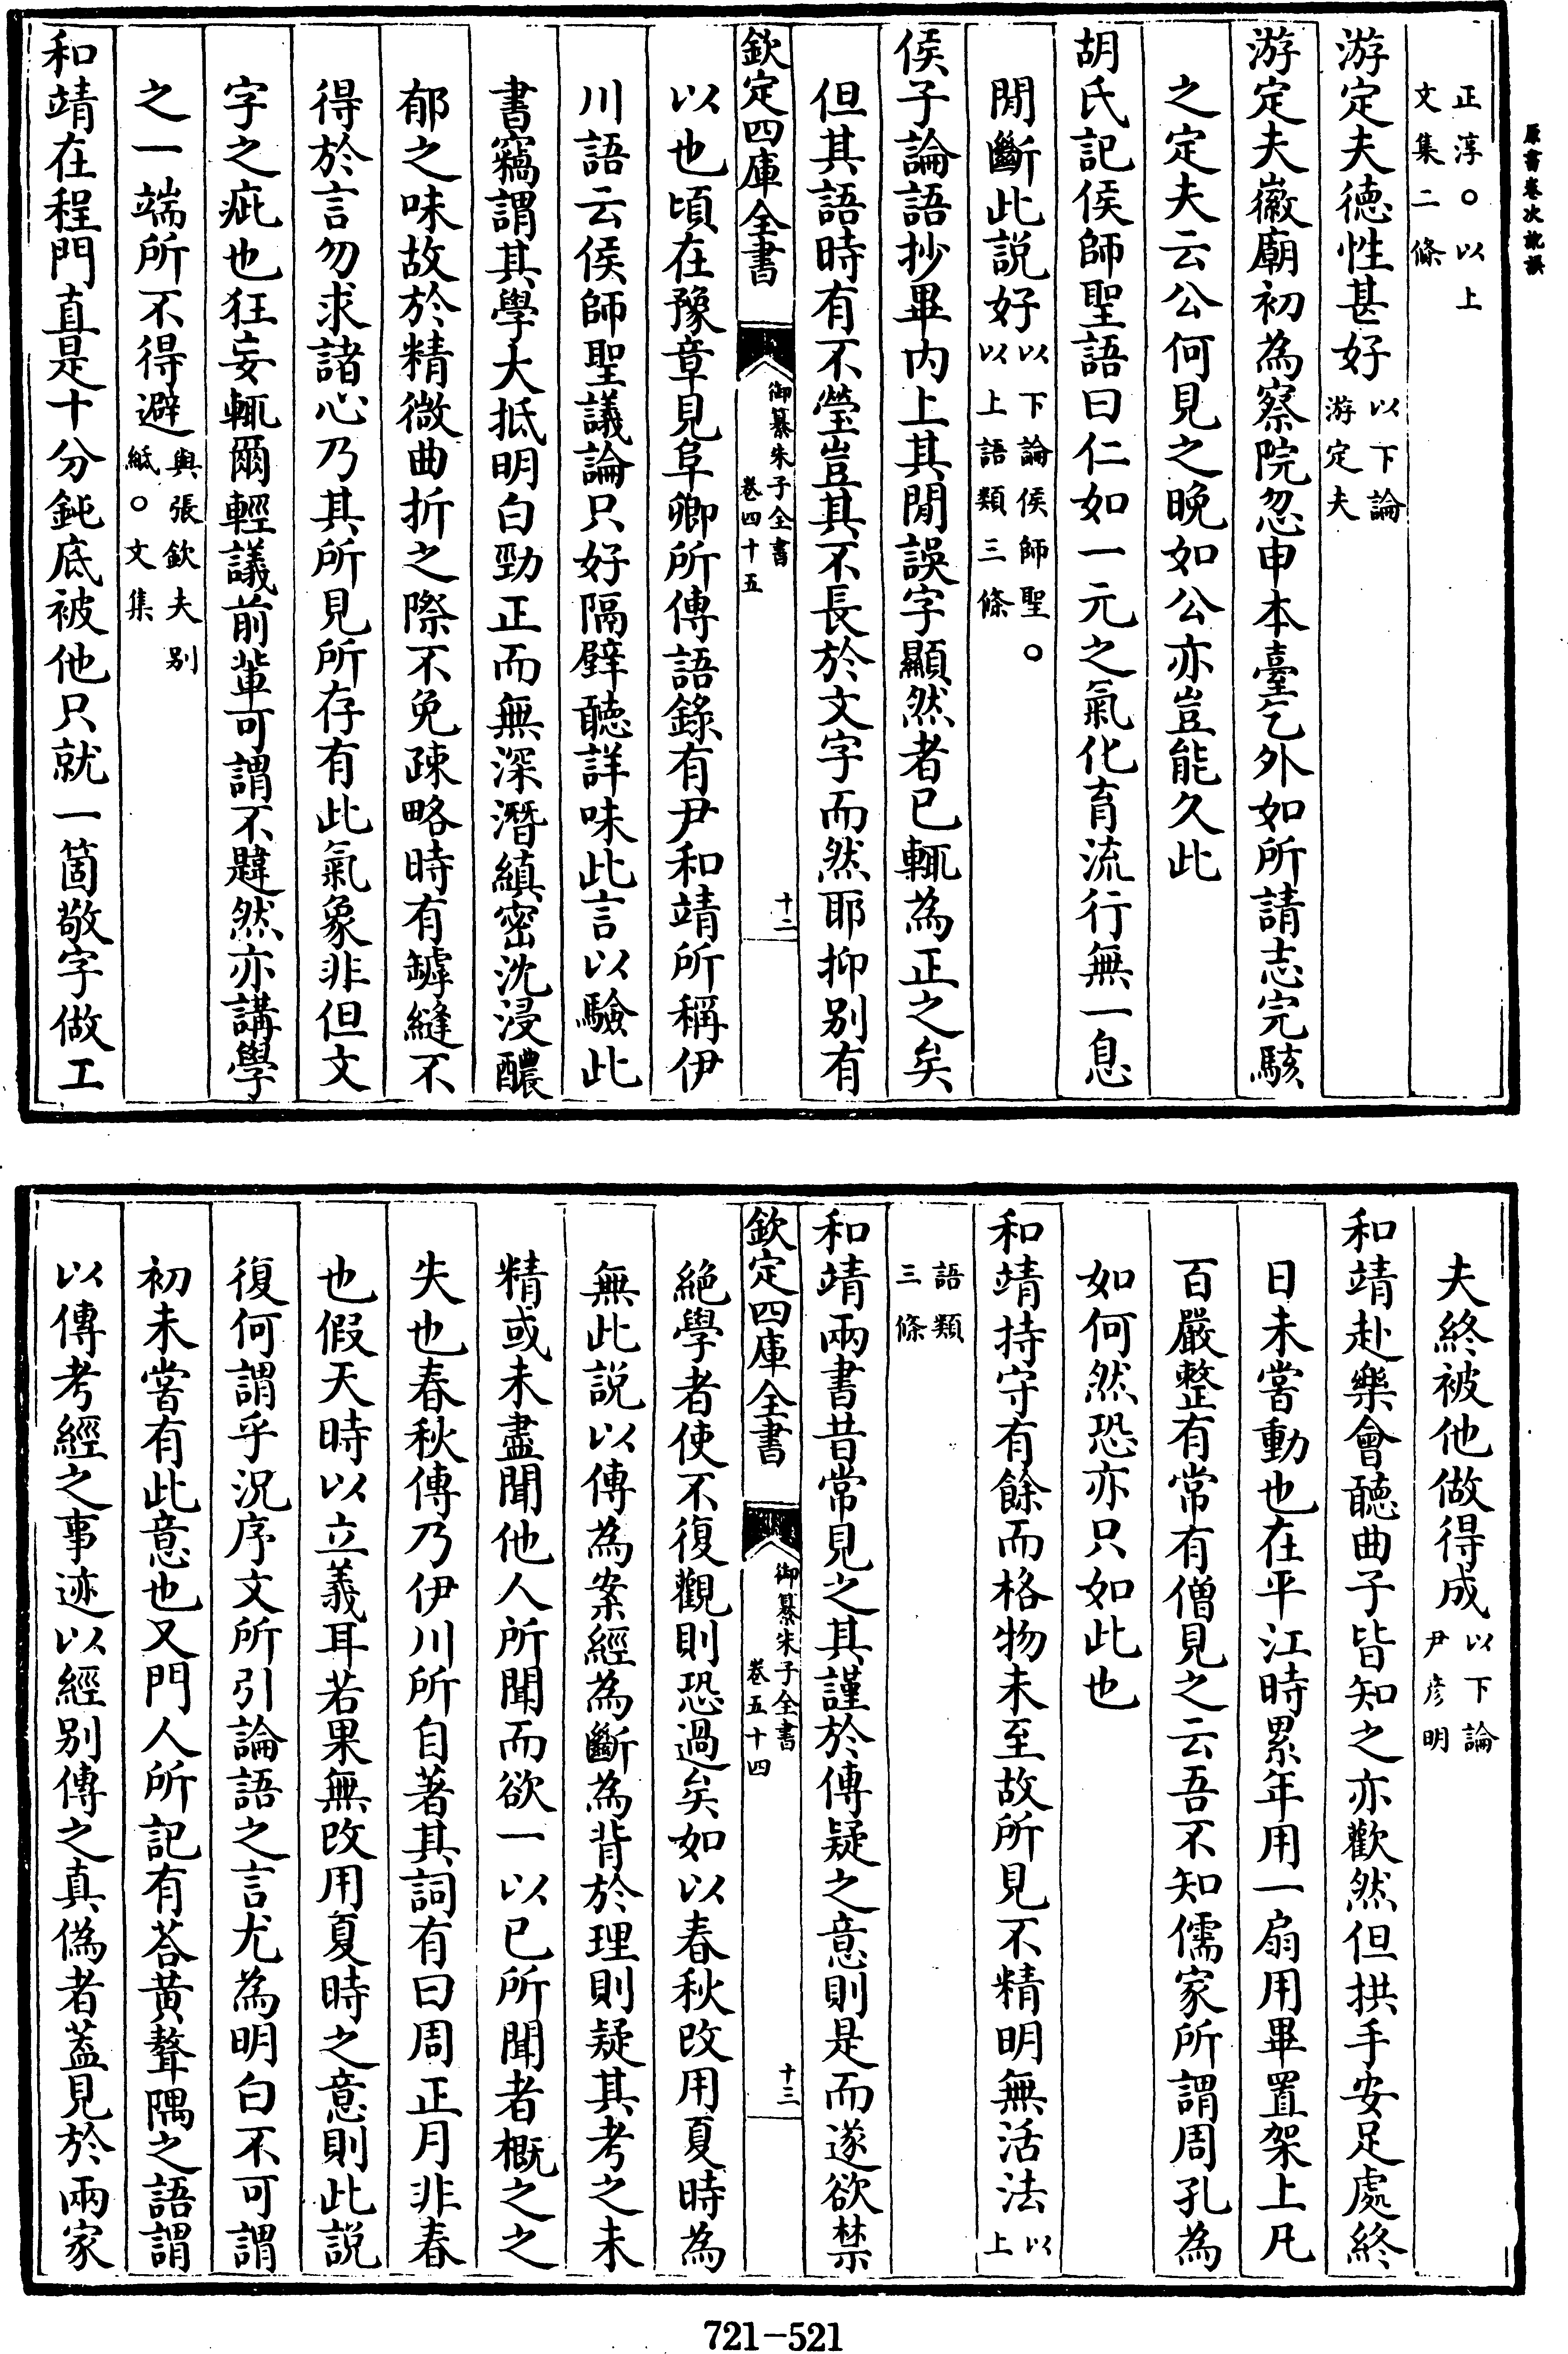 原書卷次訛誤
正淳○以上
文集二條
游定夫德性甚好以下論
游定夫
游定夫徽廟初為察院忽申本臺乞外如所請志完駭
之定夫云公何見之晚如公亦豈能久此
胡氏記侯師聖語曰仁如一元之氣化育流行無一息
閒斷此説好以下論侯師聖○
以上語類三條
侯子論語抄畢内上其閒誤字顯然者已輒為正之矣
但其語時有不瑩豈其不長於文字而然耶抑别有
欽定四庫全書
御纂朱子全書
卷四十五
十二
以也頃在豫章見阜卿所傳語錄有尹和靖所稱伊
川語云侯師聖議論只好隔壁聽詳味此言以驗此
書竊謂其學大抵明白勁正而無深潛縝密沈浸醲
郁之味故於精微曲折之際不免疎略時有罅縫不
得於言勿求諸心乃其所見所存有此氣象非但文
字之疵也狂妄輒爾輕議前輩可謂不韙然亦講學
之一端所不得避與張欽夫别
紙○文集
和靖在程門直是十分鈍底被他只就一箇敬字做工
夫終被他做得成以下論
尹彦明
和靖赴樂會聽曲子皆知之亦歡然但拱手安足處終
日未嘗動也在平江時累年用一扇用畢置架上凡
百嚴整有常有僧見之云吾不知儒家所謂周孔為
如何然恐亦只如此也
和靖持守有餘而格物未至故所見不精明無活法以
上
語類
三條
和靖兩書昔常見之其謹於傳疑之意則是而遂欲禁
欽定四庫全書
御纂朱子全書
卷五十四
十三
絕學者使不復觀則恐過矣如以春秋改用夏時為
無此説以傳為案經為斷為背於理則疑其考之未
精或未盡聞他人所聞而欲一以已所聞者概之之
失也春秋傳乃伊川所自著其詞有曰周正月非春
也假天時以立義耳若果無改用夏時之意則此説
復何謂乎況序文所引論語之言尤為明白不可謂
初未嘗有此意也又門人所記有荅黄聱隅之語謂
以傳考經之事迹以經别傳之真偽者葢見於兩家
721-521